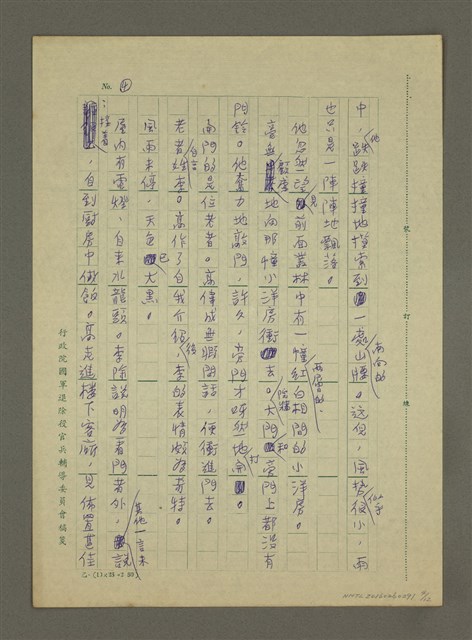 No. ④
中,他跌跌撞撞地摸索到一處山腰南向的。這兒,風勢似乎很小,雨
也只是一陣陣地飄落。
他忽然望見前面叢林中有一幢兩層的紅白相間的小洋房。
高無地向那幢小洋房衝去。大門和旁門上都沒有
門鈴。他奮力地敲門,許久,旁門才呀然地打開。
開門的是位老者。高偉成無暇閒話,便衝進門去。
老者自言姓李。高作了自我介紹後,李的表情頗為奇特。
風雨未停,天色已大黑。
屋內有電燈、自來水龍頭。李除說明為看門者外,其他一言未說
:接著,自到廚房中做飯。高走進樓下客廳,見佈置甚佳
行政院國軍退除役官兵輔導委員會稿箋